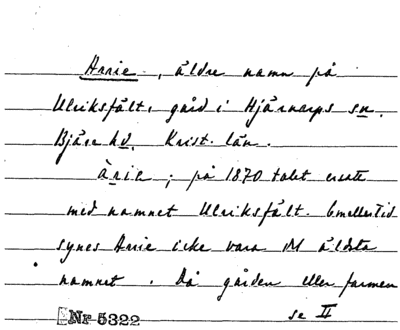 Arie, äldre namn på
Ulriksfält, gård i Hjärnarps sn.
Bjäre hd. Krist. län.
àrie; på 1870 talet ersatt
med namnet Ulriksfält. Emellertid
synes Arie icke vara det äldsta
namnet. Då gården eller farmen
Nr 5322 se II